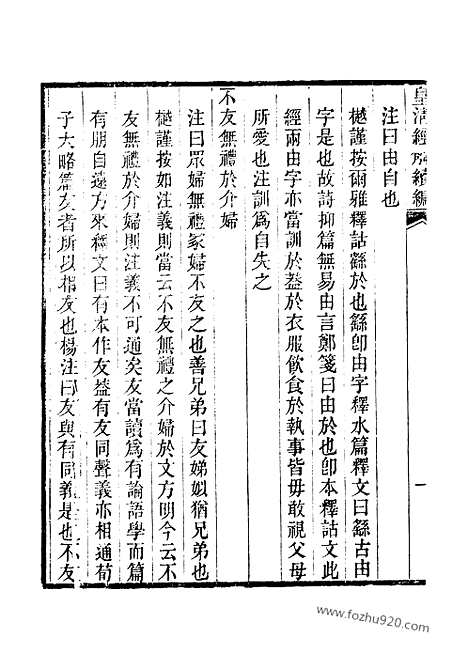 皇清經解續編
注曰由自也
樾謹按爾雅釋詁繇於也繇卽由字釋水篇釋文曰繇古由
字是也故詩抑篇無易由言鄭箋曰由於也卽本釋詁文此
經兩由字亦當訓於葢於衣服飲食於執事皆毋敢視父母
所愛也注訓爲自失之
不友無禮於介婦
注曰眾婦無禮冢婦不友之也善兄弟曰友娣姒猶兄弟也
樾謹按如注義則當云不友無禮之介婦於文方明今云不
友無禮於介婦則注義不可通矣友當讀爲有論語學而篇
有朋自遠方來釋文曰有本作友葢有友同聲義亦相通荀
子大略篇友者所以相友也楊注曰友與有同義是也不友
一
www.fozhu920.com